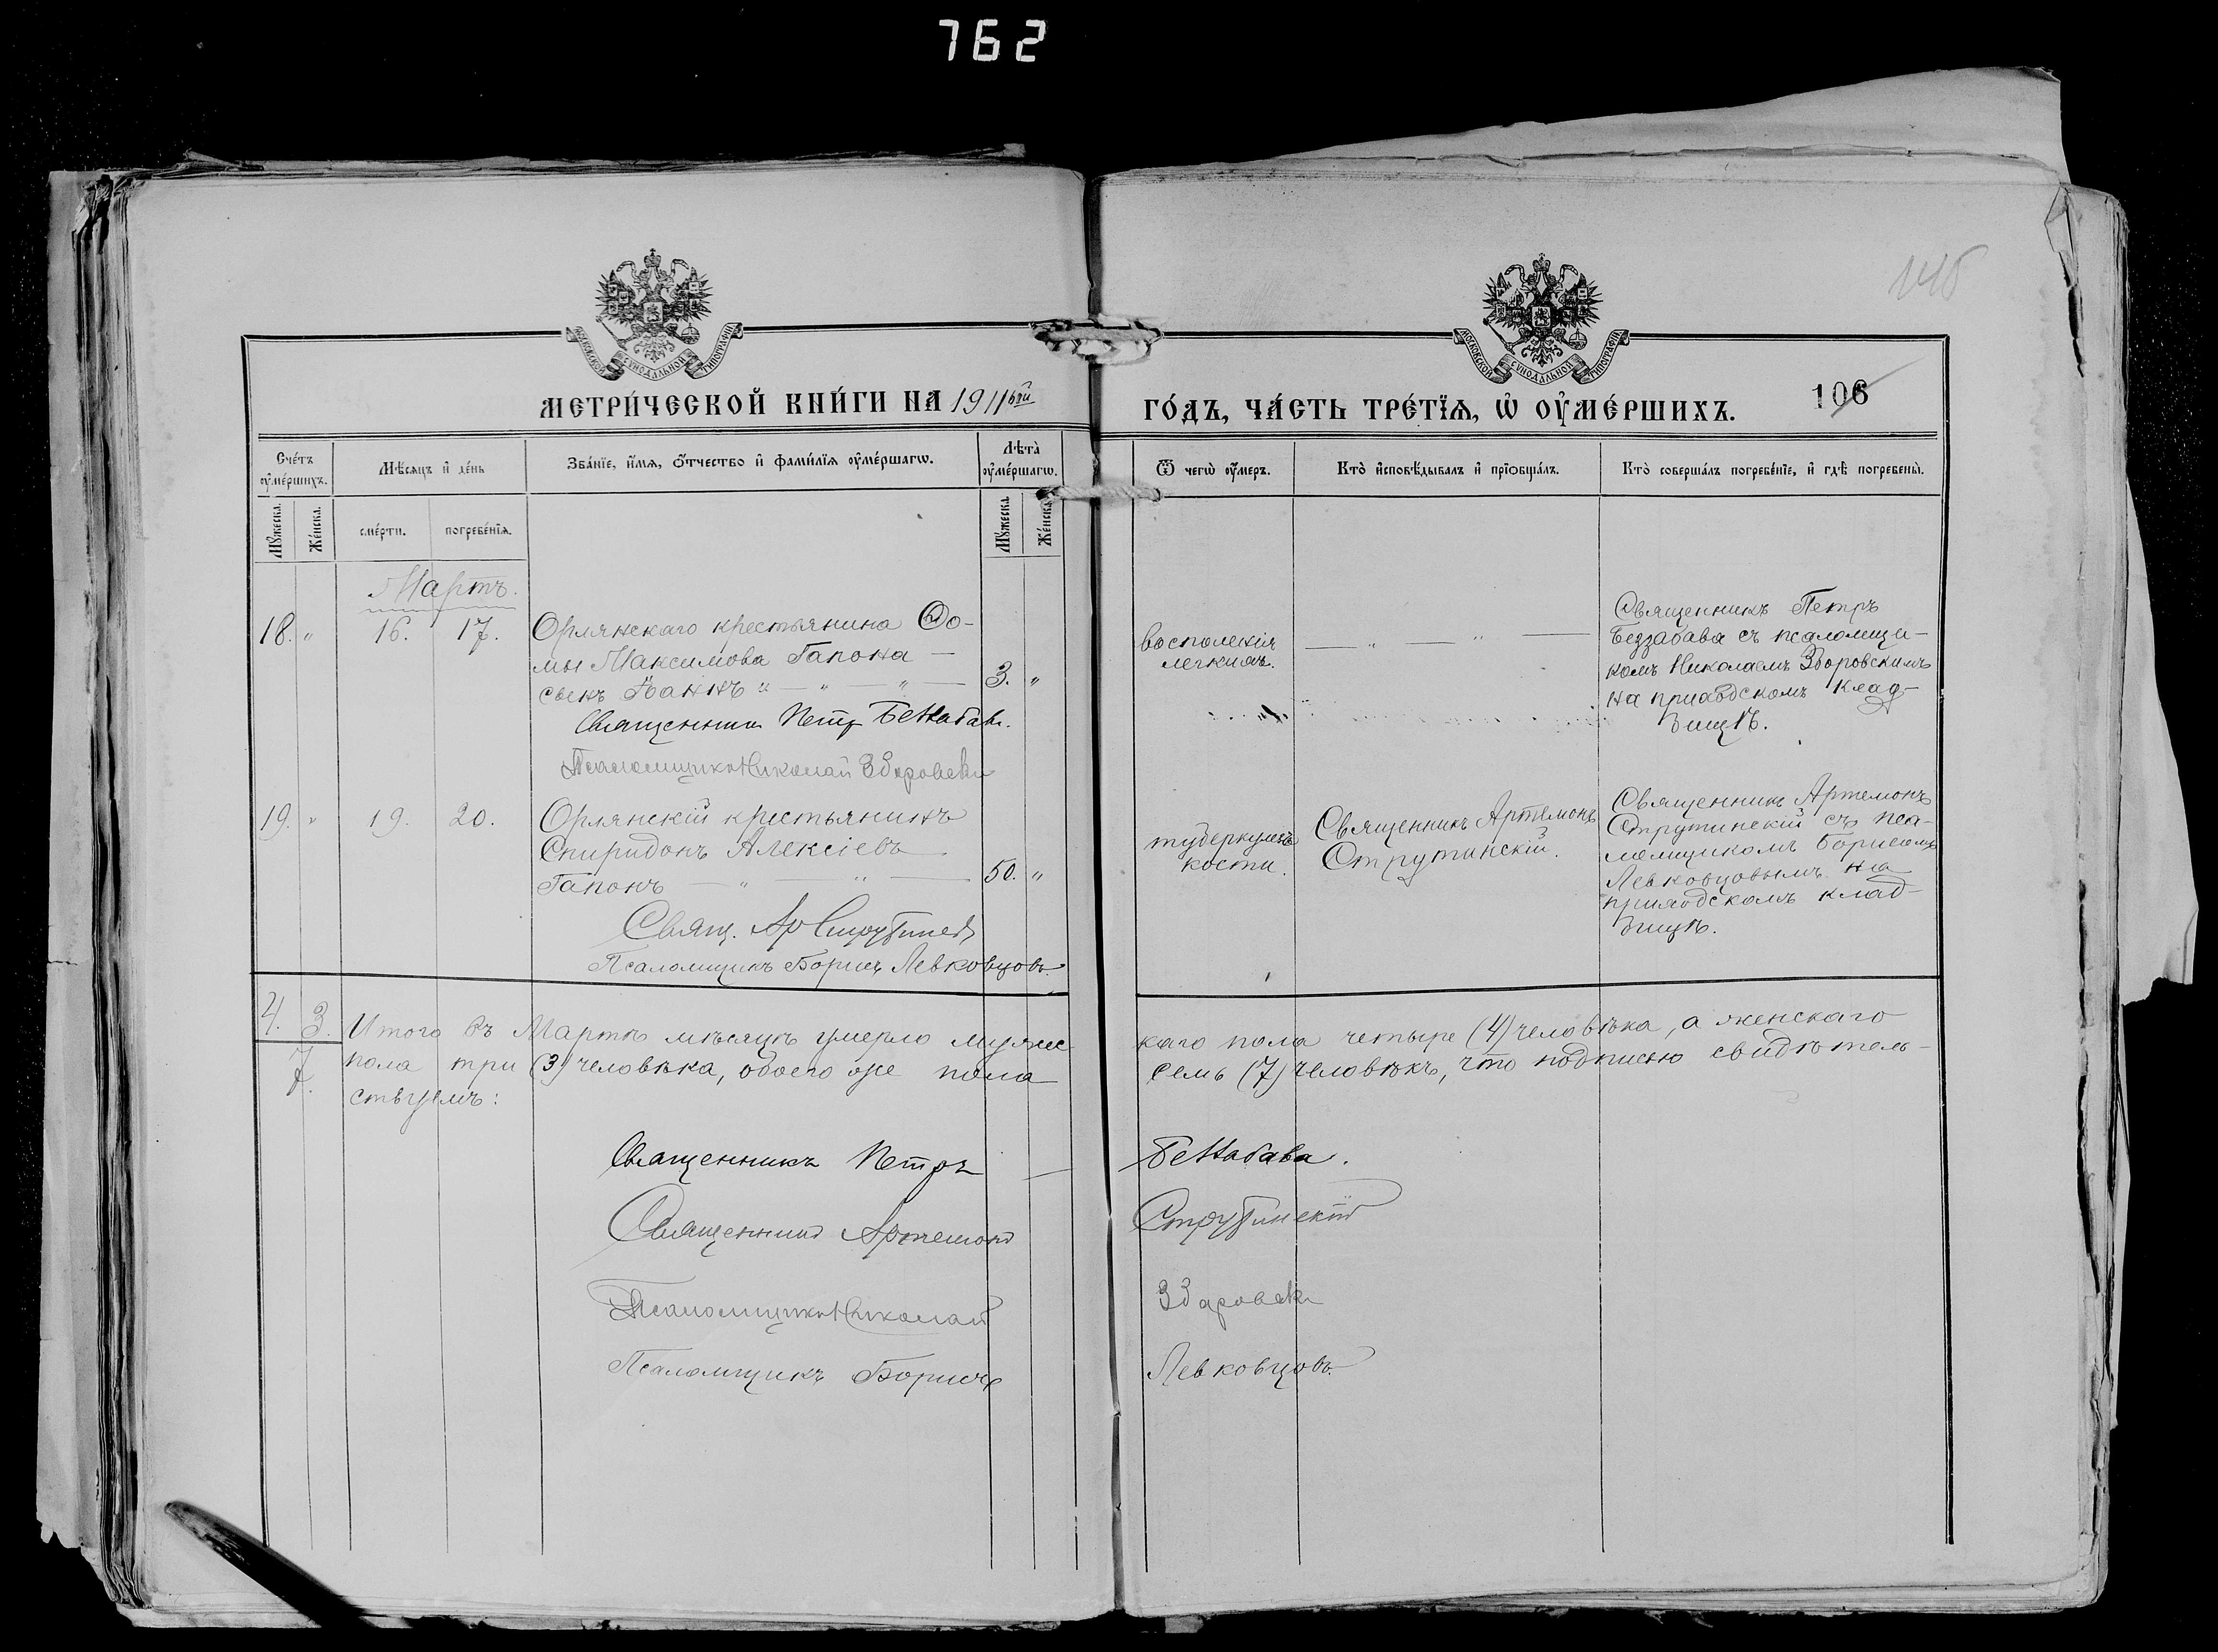 762
145
МОСКОВСКОЙ СѴНОДАЛЬНОЙ ТИПОГРАФІИ
МОСКОВСКОЙ СѴНОДАЛЬНОЙ ТИПОГРАФІИ
МЕТРИ́ЧЕСКОЙ КНИ́ГИ НА 1911ый
ГО́ДЪ, ЧА́СТЬ ТРЕ́ТЇѦ, Ѡ҆ ОУ҆МЕ́РШИХЪ.
106
Сче́тъ оу҆ме́ршихъ.
Мѣ́сѧцъ и҆ де́нь
Зва́нїе, и҆́мѧ, ѻ҆́тчество и҆ фами́лїѧ оу҆ме́ршагѡ.
Лѣ́та оу҆ме́ршагѡ.
Ѿ чегѡ̀ оу҆́меръ.
Кто̀ и҆сповѣ́дывалъ и҆ прїѡбща́лъ.
Кто̀ соверша́лъ погребе́нїе, и҆ гдѣ̀ погребены̀.
Мꙋ́жеска.
Же́нска.
сме́рти.
погребе́нїѧ.
Мꙋ́жеска.
Же́нска.
Мартъ.
18. " 16. 17.
Орлянскаго крестьянина Ѳо-
мы Максимова Гапона —
сынъ Іоаннъ " — " — " —
3. "
Священникъ Петр Беззабава.
Псаломщикъ Николай Зборовскі
воспаленія
легкихъ.
— " — " —
Священникъ Петръ
Беззабава съ псаломщи-
комъ Николаемъ Зборовскимъ
на приходскомъ клад-
бищѣ.
19. " 19. 20.
Орлянскій крестьянинъ
Спиридонъ Алексіевъ
Гапонъ — " — " —
50. "
Свящ. Ар Струтинскій
Псаломщикъ Борисъ Левковцовъ.
туберкулезъ
кости.
Священникъ Артемонъ
Струтинскій.
Священникъ Артемонъ
Струтинскій съ пса-
ломщикомъ Борисомъ
Левковцовымъ на
приходскомъ клад-
бищѣ.
4. 3.
7.
Итого въ Мартѣ мѣсяцѣ умерло мужес-
каго пола четыре (4) человѣка, а женскаго
пола три (3) человѣка, обоего же пола
семь (7) человѣкъ, что подписью свидѣтель-
ствуемъ:
Священникъ Петръ Беззабава.
Священникъ Артемонъ Струтинскій
Псаломщикъ Николай Зборовскі
Псаломщикъ Борисъ Левковцовъ.